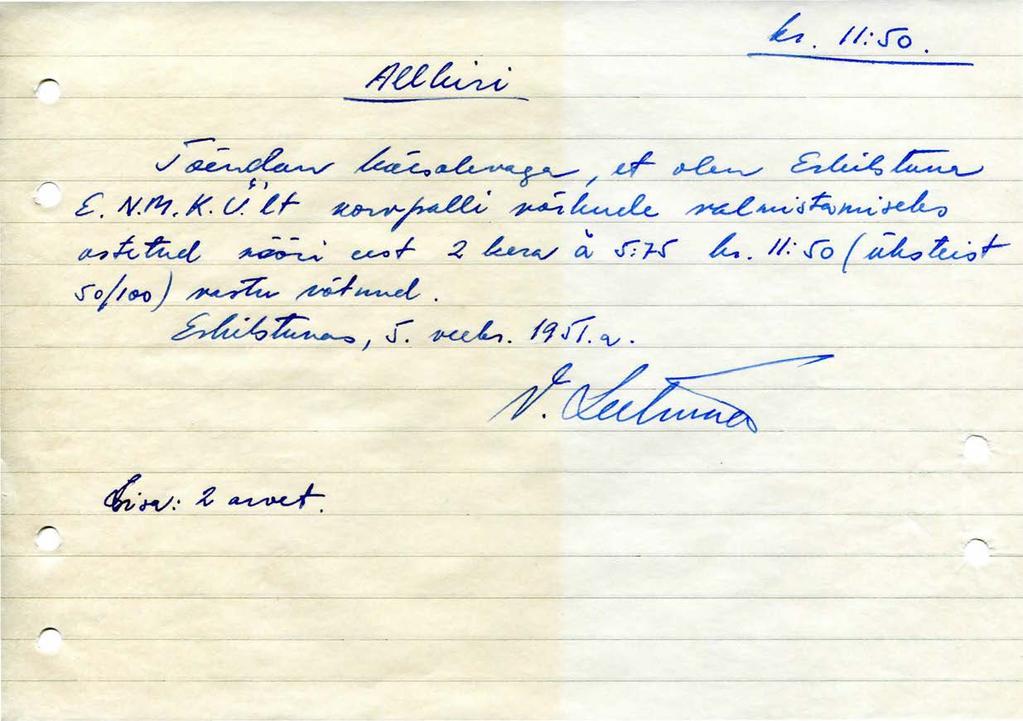 kr. 11:50.
Allkiri
Tõendan käesolevaga, et olen Eskilstuna
E.N.M.K.Ü.'lt korvpalli võrkude valmistamiseks
ostetud nööri eest 2 kera à 5:75 kr. 11:50 (üksteist
50/100) vastu võtnud.
Eskilstunas, 5. veebr. 1951. a.
V.
Lisa: 2 arvet.